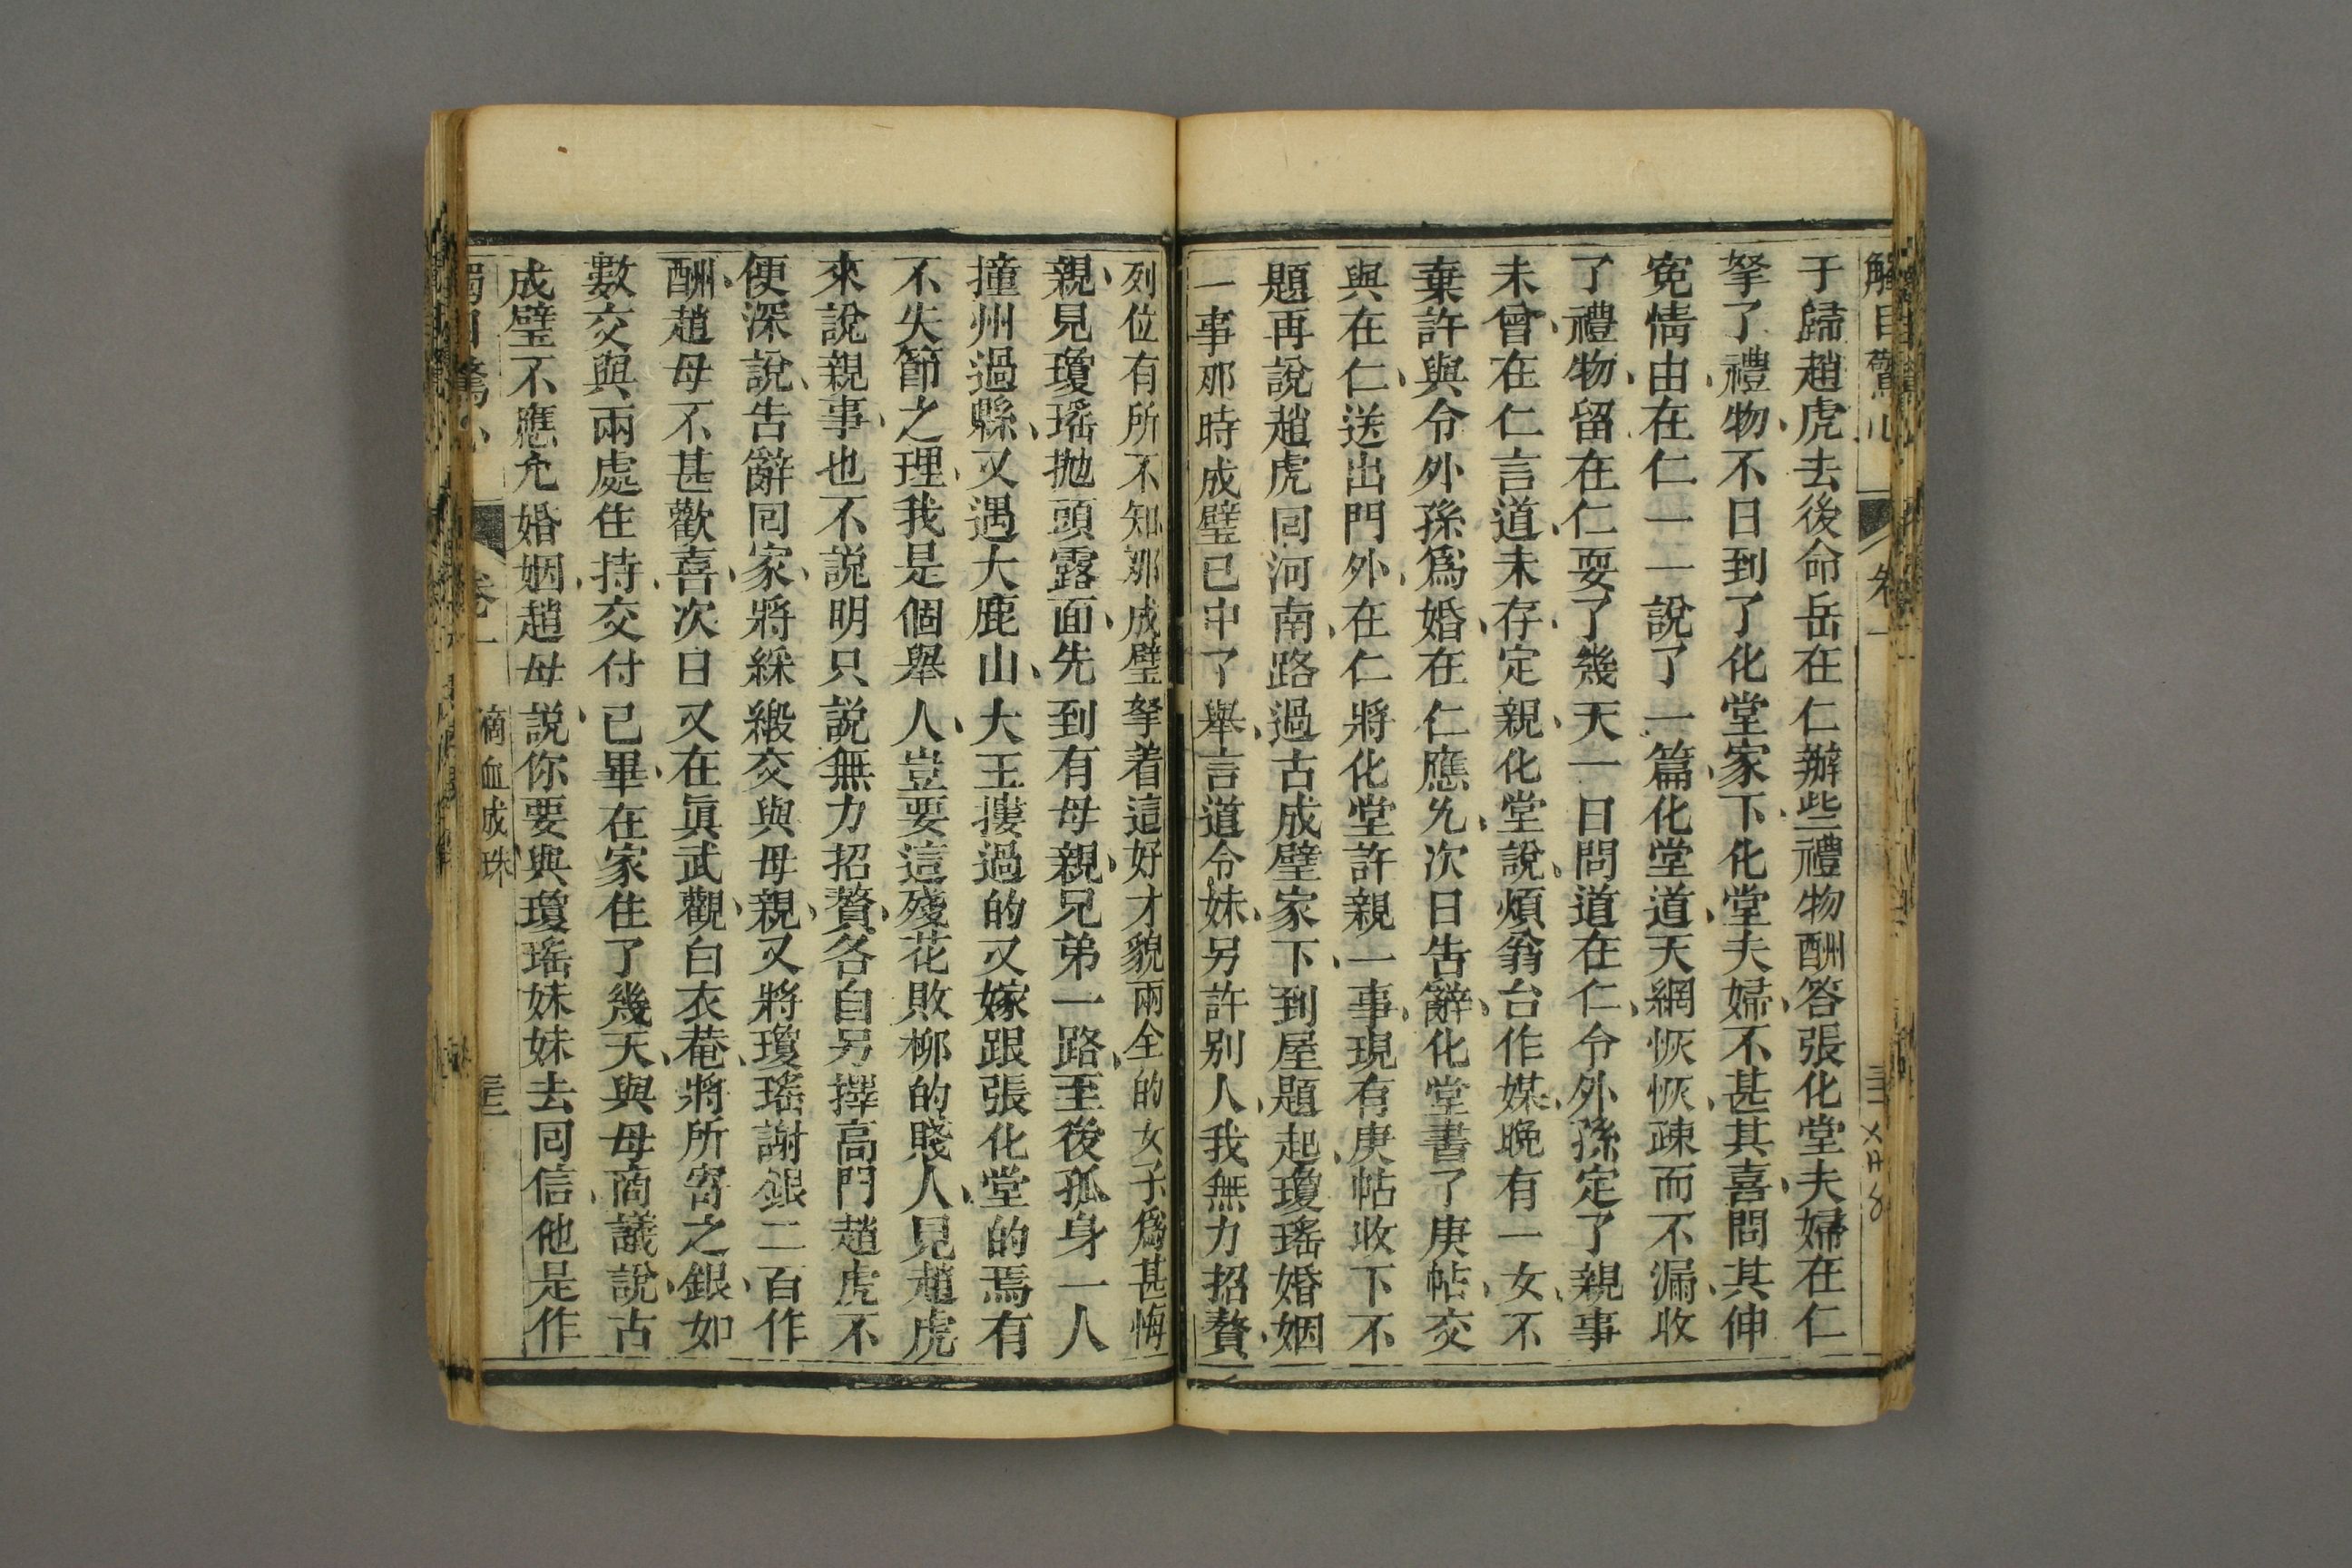 觸目驚心
卷一
于歸趙虎去後命岳在仁辦些禮物酬答張化堂夫婦在仁
拏了禮物不日到了化堂家下化堂夫婦不甚其喜問其伸
寃情由在仁一一說了一篇化堂道天網恢恢疎而不漏收
了禮物留在仁耍了幾天一日問道在仁令外孫定了親事
未曾在仁言道未存定親化堂說煩翁台作媒晚有一女不
棄許與令外孫爲婚在仁應允次日告辭化堂書了庚帖交
與在仁送出門外在仁將化堂許親一事現有庚帖收下不
題再說趙虎囘河南路過古成璧家下到屋題起瓊瑤婚姻
一事那時成璧已中了舉言道令妹另許别人我無力招贅
列位有所不知那成璧拏着這好才貌兩全的女子爲甚悔
親見瓊瑤拋頭露面先到有母親兄弟一路至後孤身一人
撞州過縣又遇大鹿山大王摟過的又嫁跟張化堂的焉有
不失節之理我是個舉人豈要這殘花敗柳的賤人見趙虎
來說親事也不說明只說無力招贅各自另擇高門趙虎不
便深說告辭囘家將綵緞交與母親又將瓊瑤謝銀二百作
酬趙母不甚歡喜次日又在眞武觀白衣菴將所寄之銀如
數交與兩處住持交付已畢在家住了幾天與母商議說古
成璧不應允婚姻趙母說你要與瓊瑤妹妹去囘信他是作
觸目驚心
卷一
滴血成珠